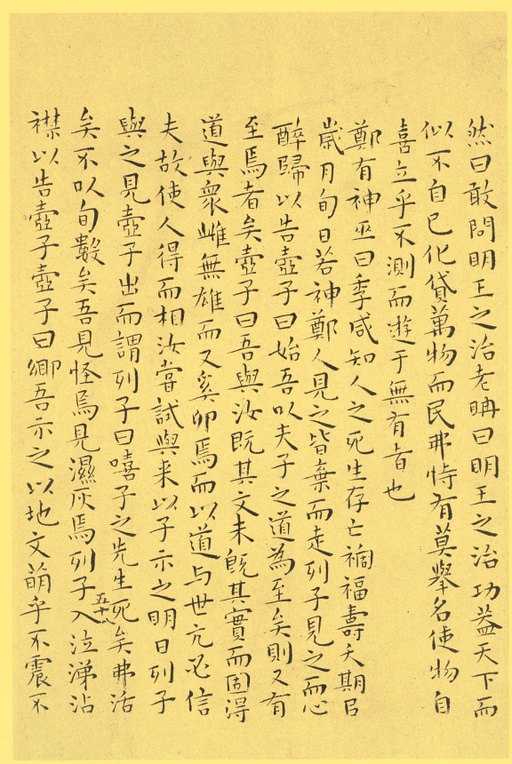 然曰敢問明王之治老聃曰明王之治功蓋天下而
似不自已化貸萬物而民弗恃有莫舉名使物自
喜立乎不測而遊于無有者也
鄭有神巫曰季咸知人之死生存亡禍福壽夭期以
歲月旬日若神鄭人見之皆棄而走列子見之而心
醉歸以告壺子曰始吾以夫子之道為至矣則又有
至焉者矣壺子曰吾與汝既其文未既其實而固得
道與衆雌無雄而又奚卵焉而以道与世亢必信
夫故使人得而相汝嘗試與来以予示之明日列子
與之見壺子出而謂列子曰嘻子之先生死矣弗活
五十八
矣不以旬數矣吾見怪焉見濕灰焉列子入泣涕沾
襟以告壺子壺子曰鄉吾示之以地文萌乎不震不